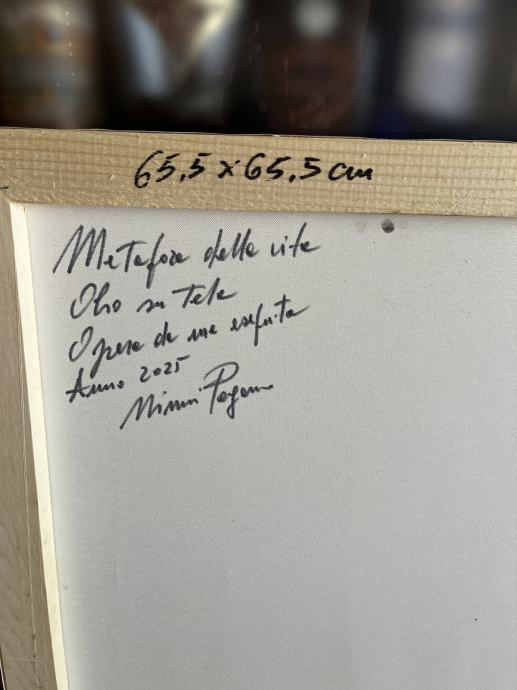 65,5 x 65,5 cm
Metafora della vita
Olio su Tela
Opera da me eseguita
Anno 2025